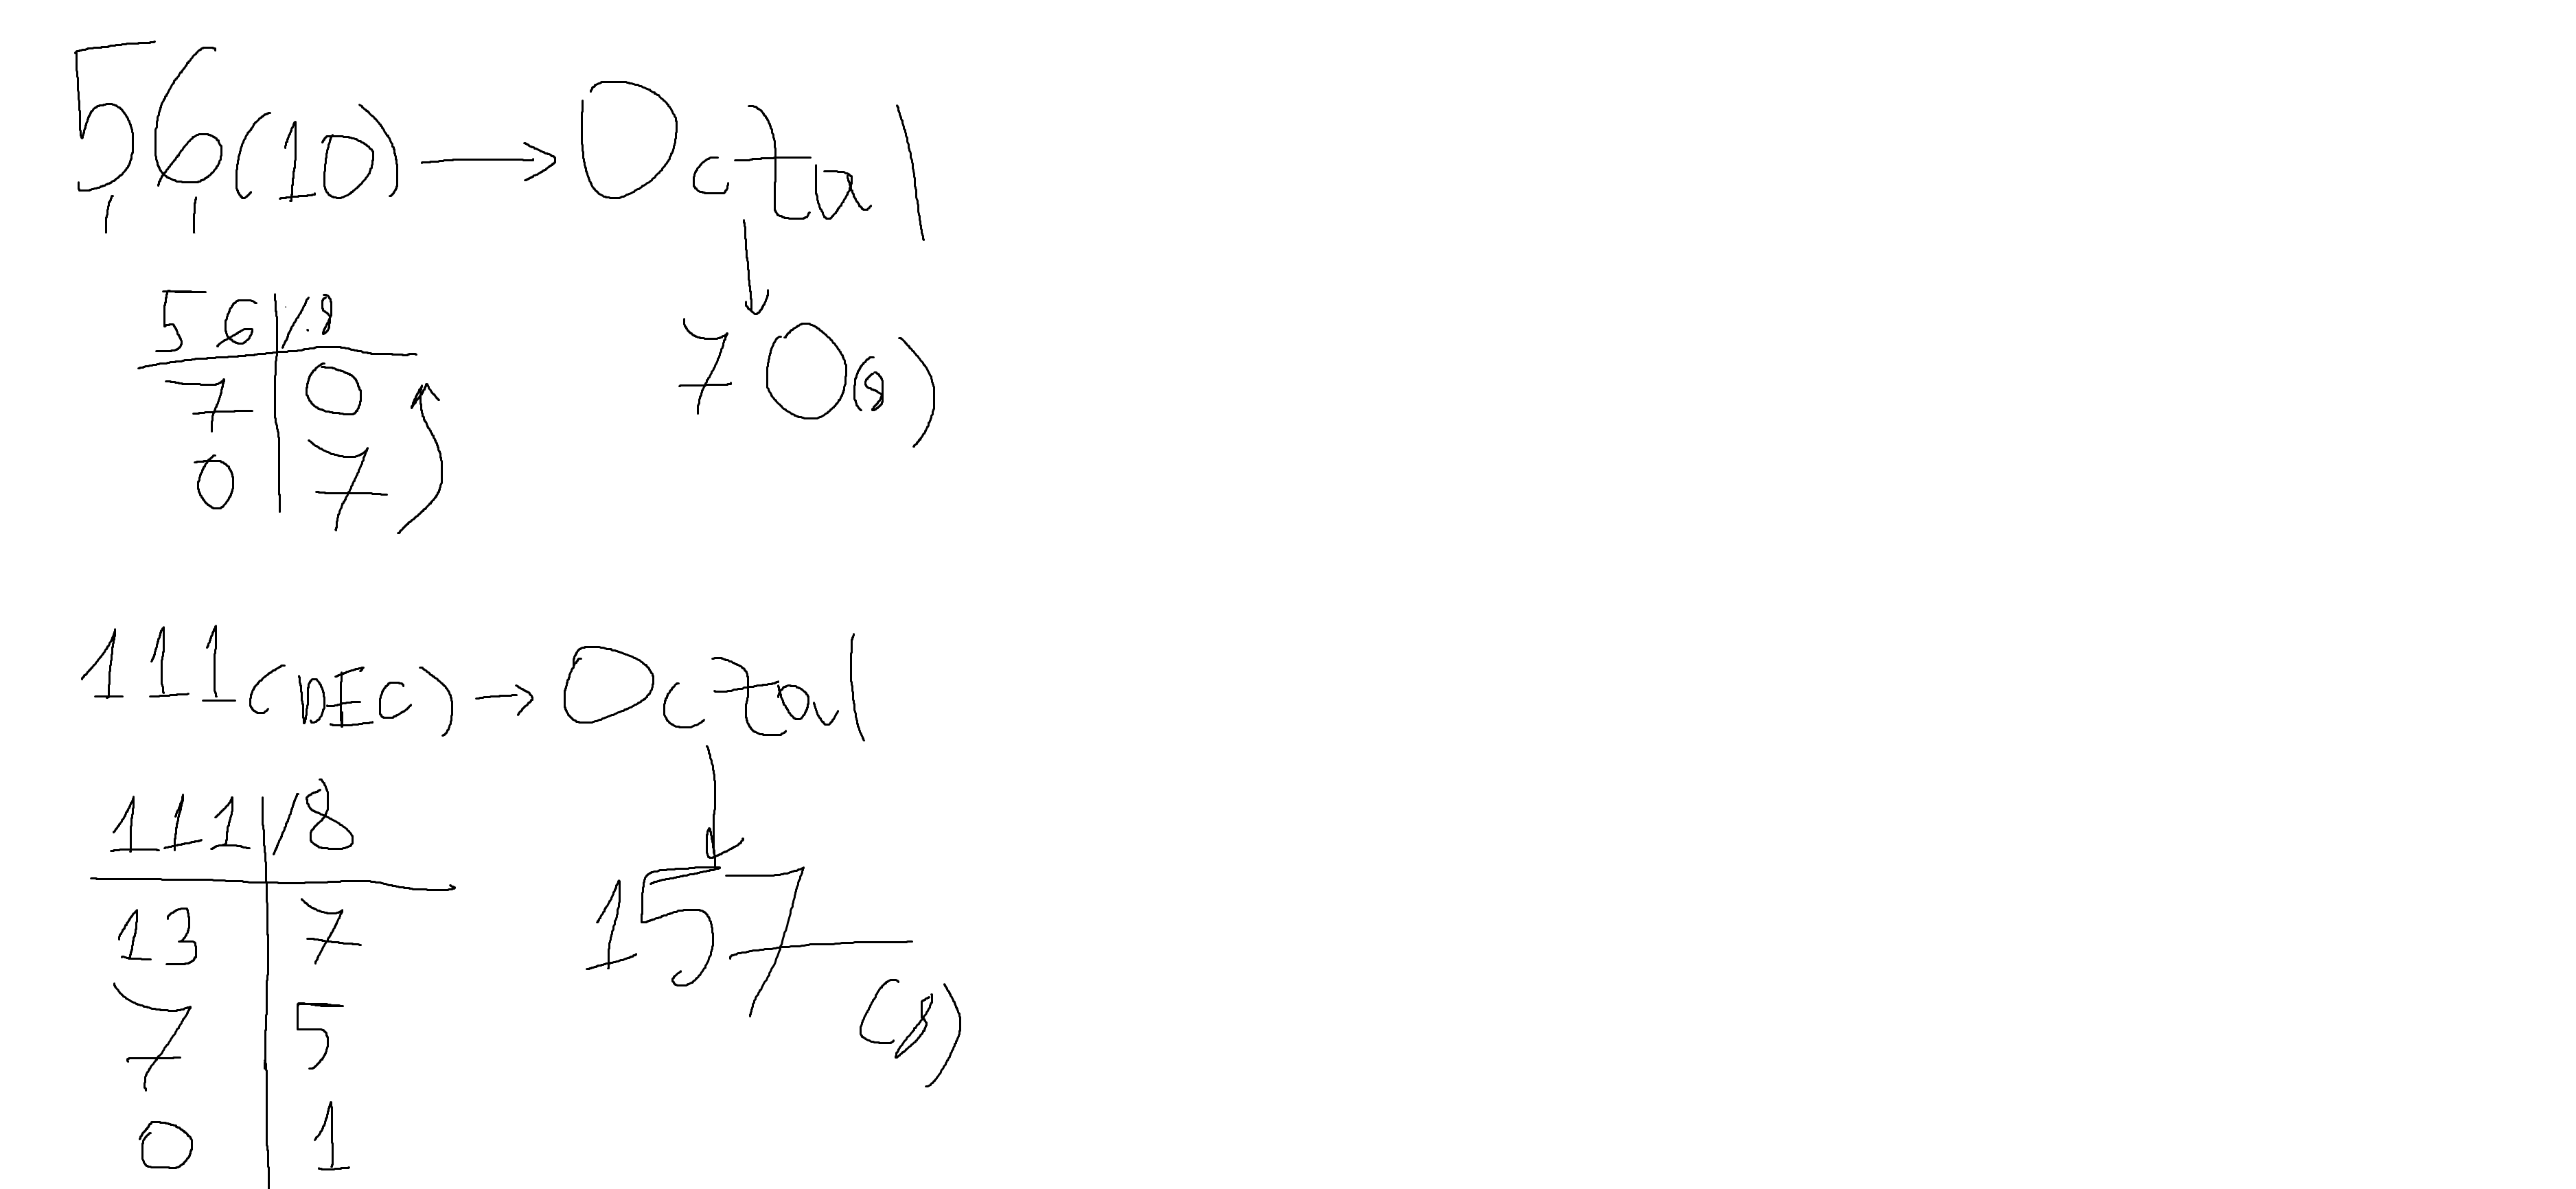 56(10) → Octal
56 | /8
7 | 0
0 | 7
70(8)
111(DEC) → Octal
111 | /8
13 | 7
7 | 5
0 | 1
157(8)